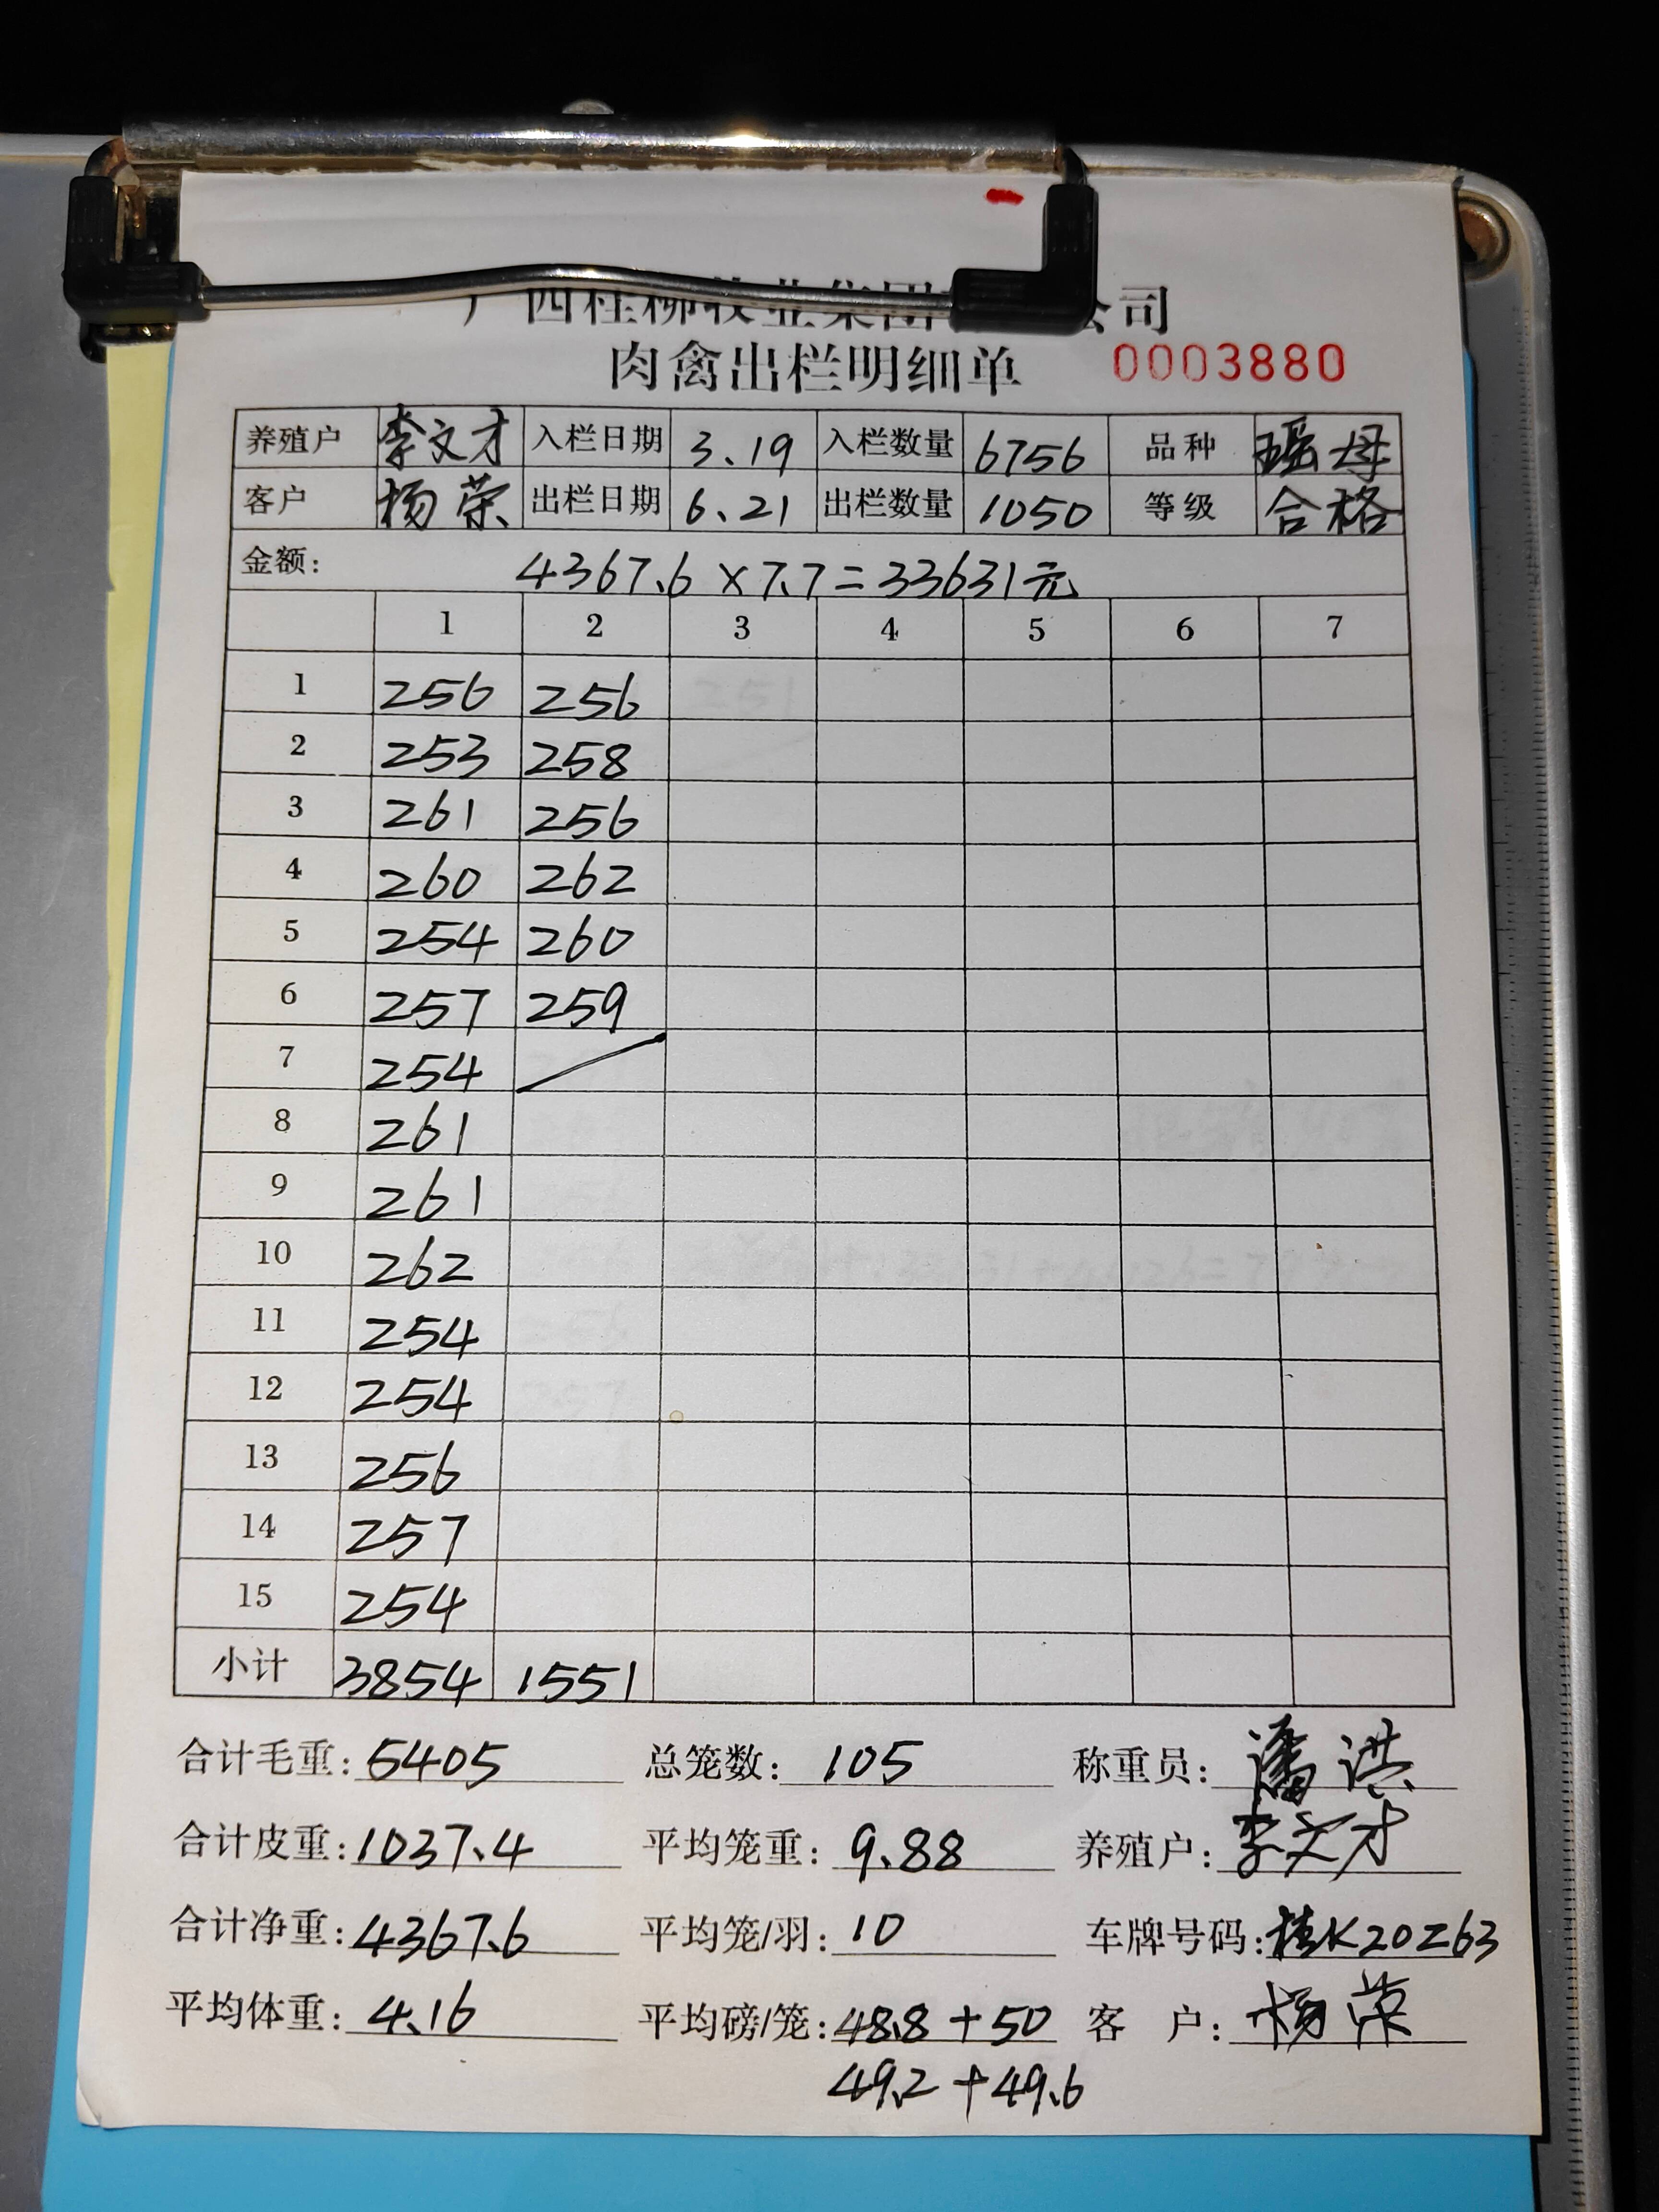 广西桂柳牧业集团 公司
肉禽出栏明细单 0003880
养殖户 李文才 入栏日期 3.19 入栏数量 6756 品种 瑶母
客户 杨荣 出栏日期 6.21 出栏数量 1050 等级 合格
金额: 4367.6×7.7=33631元
1 2 3 4 5 6 7
1 256 256
2 253 258
3 261 256
4 260 262
5 254 260
6 257 259
7 254
8 261
9 261
10 262
11 254
12 254
13 256
14 257
15 254
小计 3854 1551
合计毛重: 5405 总笼数: 105 称重员: 潘洪
合计皮重: 1037.4 平均笼重: 9.88 养殖户: 李文才
合计净重: 4367.6 平均笼/羽: 10 车牌号码: 桂K20Z63
平均体重: 4.16 平均磅/笼: 48.8+50 客 户: 杨荣
49.2+49.6